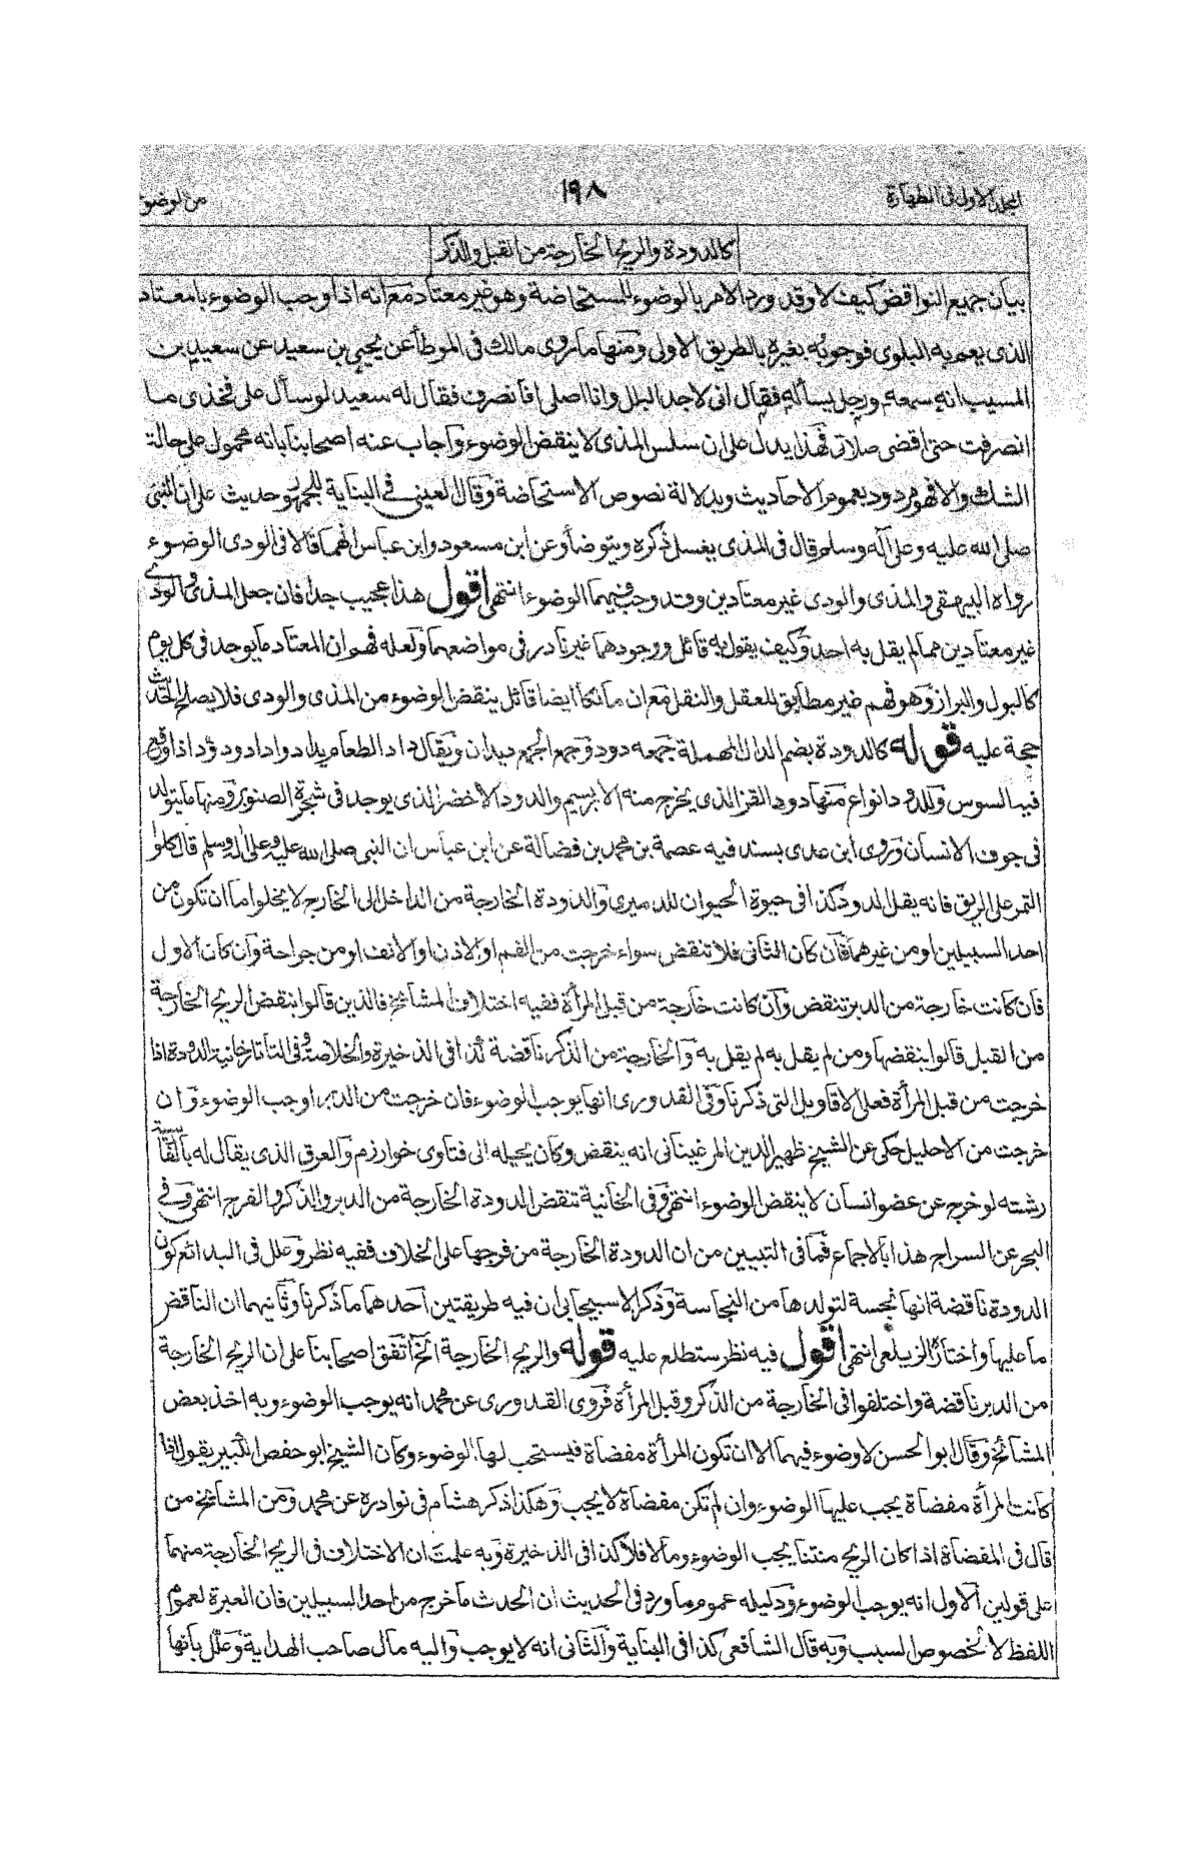 المجلد الاول فى الطهارة
١٩٨
من الوضوء
كالدودة والريح الخارجة من القبل والذكر
بيان جميع النواقض كيف لا وقد ورد الامر بالوضوء للمستحاضة وهو غير معتاد مع انه اذا وجب الوضوء بالمعتاد
الذى يعم به البلوى فوجوبه بغيره بالطريق الاولى ومنها ما روى مالك فى الموطأ عن يحيى بن سعيد عن سعيد بن
المسيب انه سمعه ورجل يسأله فقال انى لاجد البلل وانا اصلى افانصرف فقال له سعيد لو سأل على فخذى ما
انصرفت حتى اقضى صلاتى فهذا يدل على ان سلس المذى لا ينقض الوضوء واجاب عنه اصحابنا بانه محمول على حالة
الشك والا فهو مردود بعموم الاحاديث وبدلالة نصوص الاستحاضة وقال العينى فى البناية للجمهور حديث على ان النبى
صلى الله عليه وعلى آله وسلم قال فى المذى يغسل ذكره ويتوضأ وعن ابن مسعود وابن عباس انهما قالا فى الودى الوضوء
رواه البيهقى والمذى والودى غير معتادين وقد وجب فيهما الوضوء انتهى اقول هذا عجيب جدا فان جعل المذى والودى
غير معتادين مما لم يقل به احد وكيف يقول به قائل ووجودهما غير نادر فى مواضعهما ولعله فهم ان المعتاد ما يوجد فى كل يوم
كالبول والبراز وهو فهم غير مطابق للعقل والنقل مع ان مالكا ايضا قائل بنقض الوضوء من المذى والودى فلا يصلح الحديث
حجة عليه قوله كالدودة بضم الدال المهملة جمعه دود وجمع الجمع ديدان ويقال داد الطعام يداد وادادود ودؤد اذا وقع
فيه السوس وللدود انواع منها دود القز الذى يخرج منه الابريسم والدود الاخضر الذى يوجد فى شجرة الصنوبر ومنها ما يتولد
فى جوف الانسان وروى ابن عدى بسند فيه عصمة بن محمد بن فضالة عن ابن عباس ان النبى صلى الله عليه وعلى اله وسلم قال كلوا
التمر على الريق فانه يقتل الدود كذا فى حيوة الحيوان للدميرى والدودة الخارجة من الداخل الى الخارج لا يخلو اما ان تكون من
احد السبيلين او من غيرهما فان كان الثانى فلا تنقض سواء خرجت من الفم او الاذن او الانف او من جراحة وان كان الاول
فان كانت خارجة من الدبر تنقض وان كانت خارجة من قبل المرأة ففيه اختلاف المشائخ فالذين قالوا بنقض الريح الخارجة
من القبل قالوا بنقضها ومن لم يقل به لم يقل به والخارجة من الذكر ناقضة كذا فى الذخيرة والخلاصة وفى التاتارخانية الدودة اذا
خرجت من قبل المرأة فعلى الاقاويل التى ذكرنا وفى القدورى انها يوجب الوضوء فان خرجت من الدبر اوجب الوضوء وان
خرجت من الاحليل حكى عن الشيخ ظهير الدين المرغينانى انه ينقض وكان يحيله الى فتاوى خوارزم والعرق الذى يقال له بالفارسية
رشته لو خرج عن عضو انسان لا ينقض الوضوء انتهى وفى الخانية تنقض الدودة الخارجة من الدبر والذكر والفرج انتهى وفى
البحر عن السراج هذا بالاجماع فما فى التبيين من ان الدودة الخارجة من فرجها على الخلاف ففيه نظر وعلل فى البدائع كون
الدودة ناقضة انها نجسة لتولدها من النجاسة وذكر الاسبيجابى ان فيه طريقتين احدهما ما ذكرنا وثانيهما ان الناقض
ما عليها واختاره الزيلعى انتهى اقول فيه نظر ستطلع عليه قوله والريح الخارجة الخ اتفق اصحابنا على ان الريح الخارجة
من الدبر ناقضة واختلفوا فى الخارجة من الذكر وقبل المرأة فروى القدورى عن محمد انه يوجب الوضوء وبه اخذ بعض
المشائخ وقال ابو الحسن لا وضوء فيهما الا ان تكون المرأة مفضاة فيستحب لها الوضوء وكان الشيخ ابو حفص الكبير يقول اذا
كانت المرأة مفضاة يجب عليها الوضوء وان لم تكن مفضاة لا يجب وهكذا ذكر هشام فى نوادره عن محمد ومن المشائخ من
قال فى المفضاة اذا كان الريح منتنا يجب الوضوء وما لا فلا كذا فى الذخيرة وبه علمت ان الاختلاف فى الريح الخارجة منهما
على قولين الاول انه يوجب الوضوء ودليله عموم ما ورد فى الحديث ان الحدث ما خرج من احد السبيلين فان العبرة لعموم
اللفظ لا لخصوص السبب وبه قال الشافعى كذا فى البناية والثانى انه لا يوجب واليه مال صاحب الهداية وعلل بانها